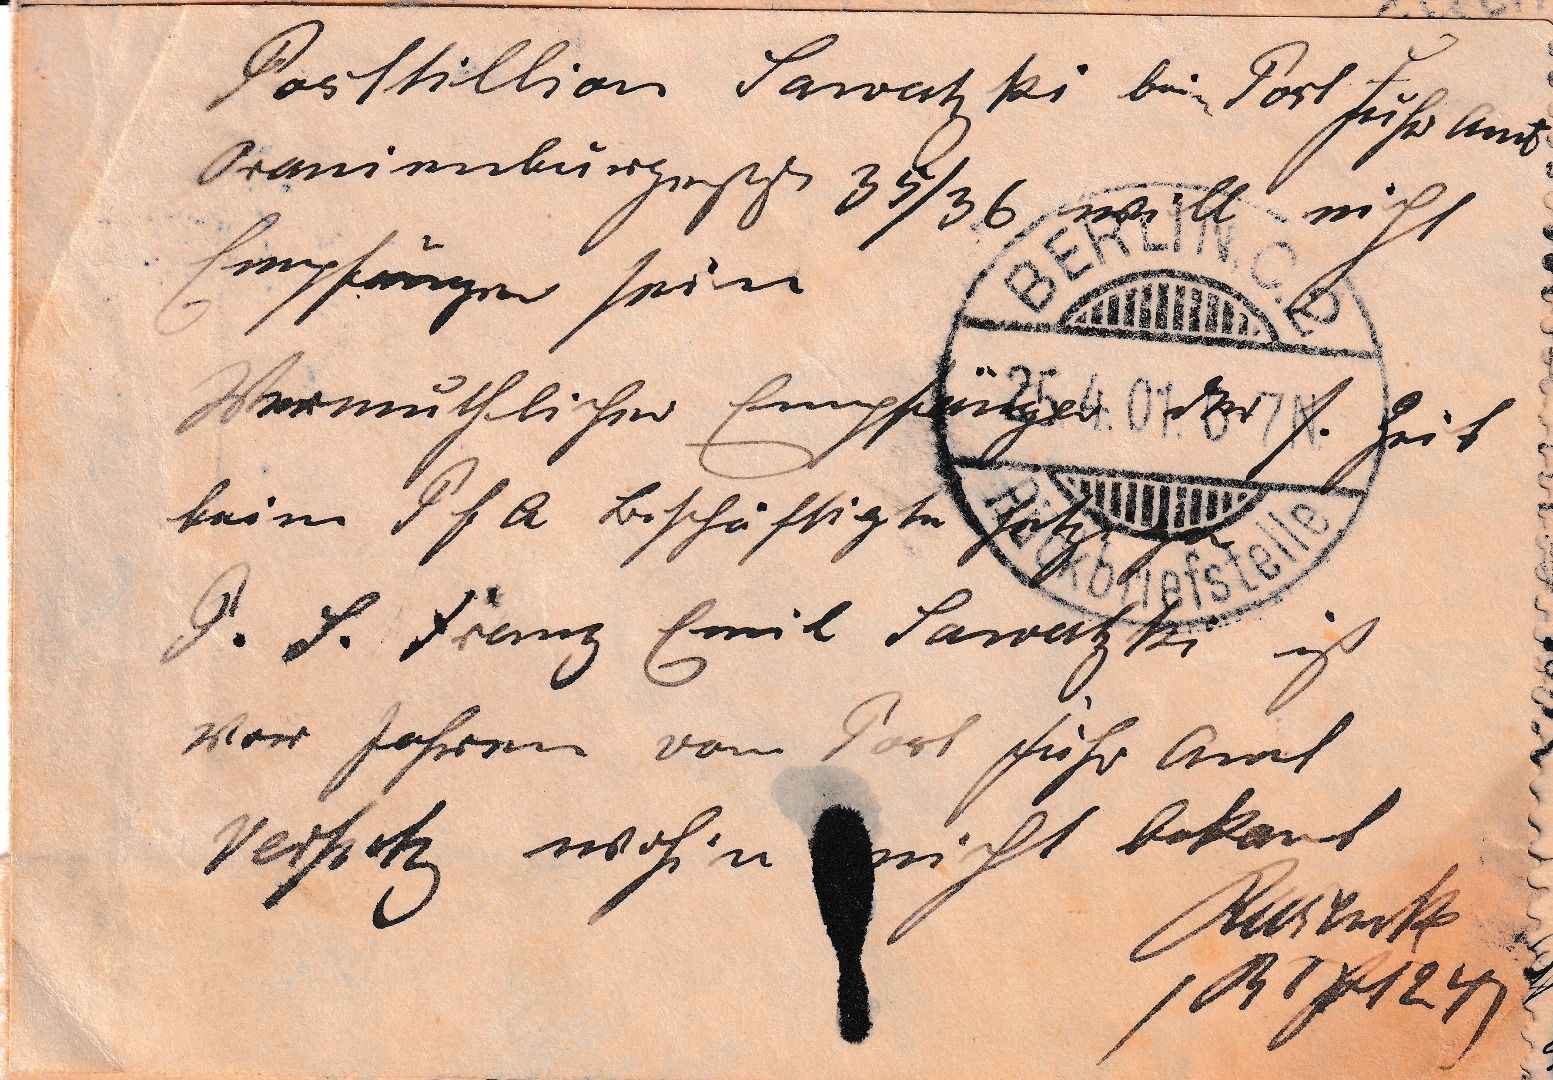 Posttillion Sawatzki bein Post Fuhr Amt
Oranienburgerstr 35/36 will nicht
Empfänger sein
Vermuthlicher Empfänger der z. Zeit
beim P f A beschäftigte
P. S. Franz Emil Sawatzki ist
vor Jahren vom Post Fuhr Amt
versetz wohin nicht bekant
BERLIN, C. 2
25.4.01. 6-7N.
Rückbriefstelle